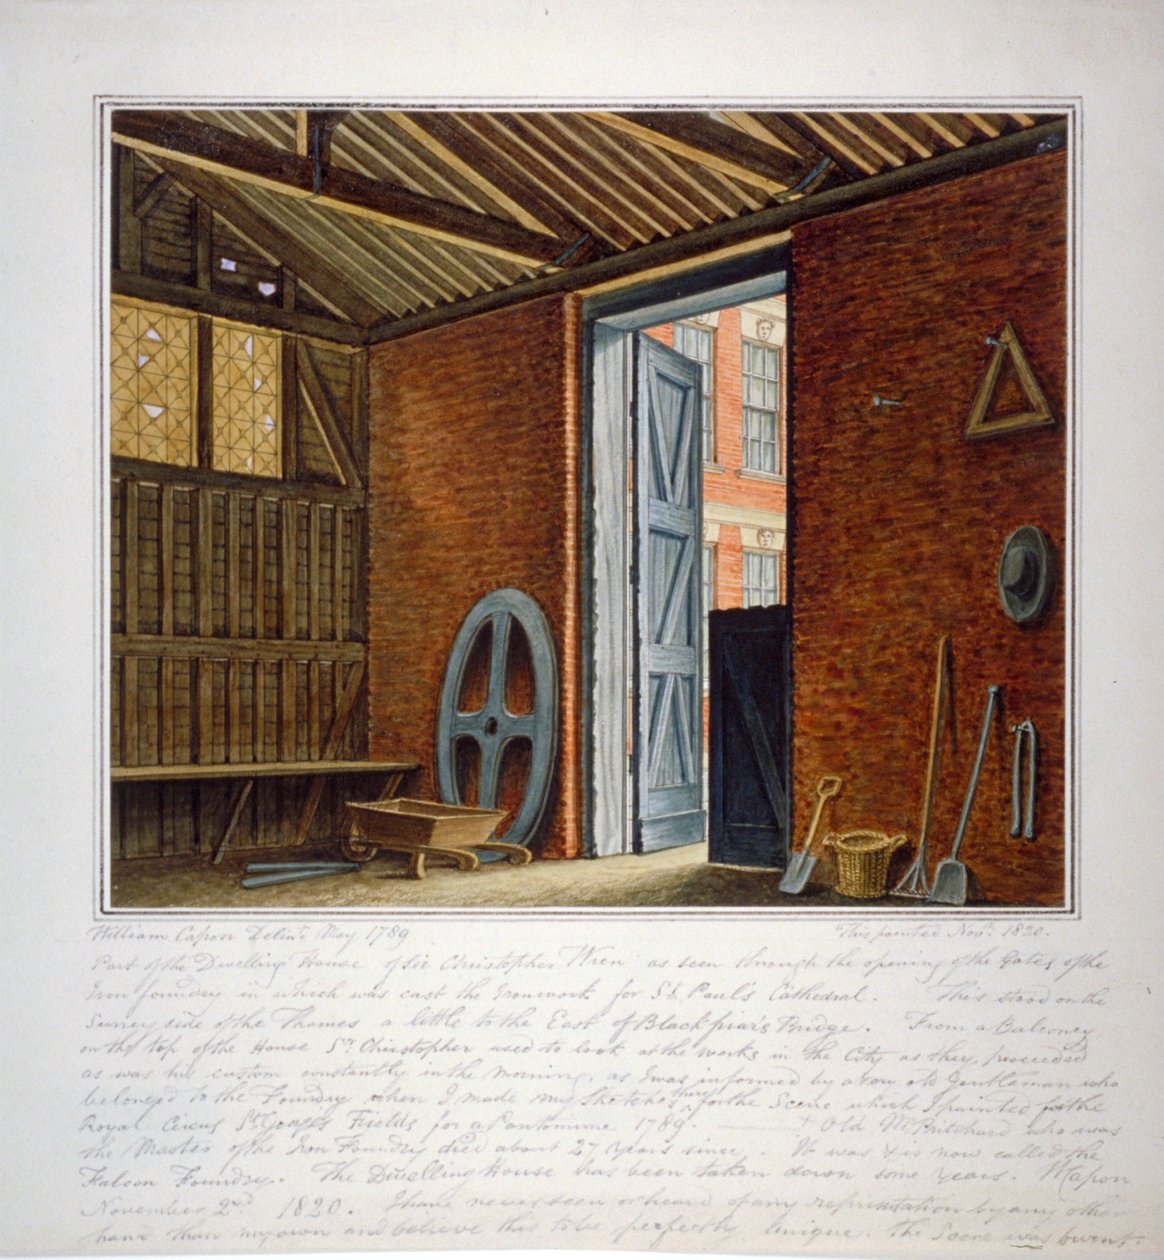 William Capon Delint. May 1789
This painted Novr. 1820.
Part of the Dwelling House of Sir Christopher Wren as seen through the opening of the Gates of the
Iron foundry in which was cast the Ironwork for St. Paul's Cathedral. This stood on the
Surrey side of the Thames a little to the East of Blackfriar's Bridge. From a Balconey
on the top of the House Sr. Christopher used to look at the works in the City as they proceeded
as was his custom constantly in the Morning, as I was informed by a very old Gentleman who
belonged to the Foundry when I made my Sketches there for the Scene which I painted for the
Royal Circus St. George's Fields for a Pantomime 1789. Old Mr Pritchard who was
the Master of the Iron Foundry died about 27 years since. It was & is now called the
Falcon Foundry. The Dwelling House has been taken down some years. W Capon
November 2nd 1820. I have never seen or heard of any representation by any other
hand than my own and believe this to be perfectly Unique. The Scene was burnt.